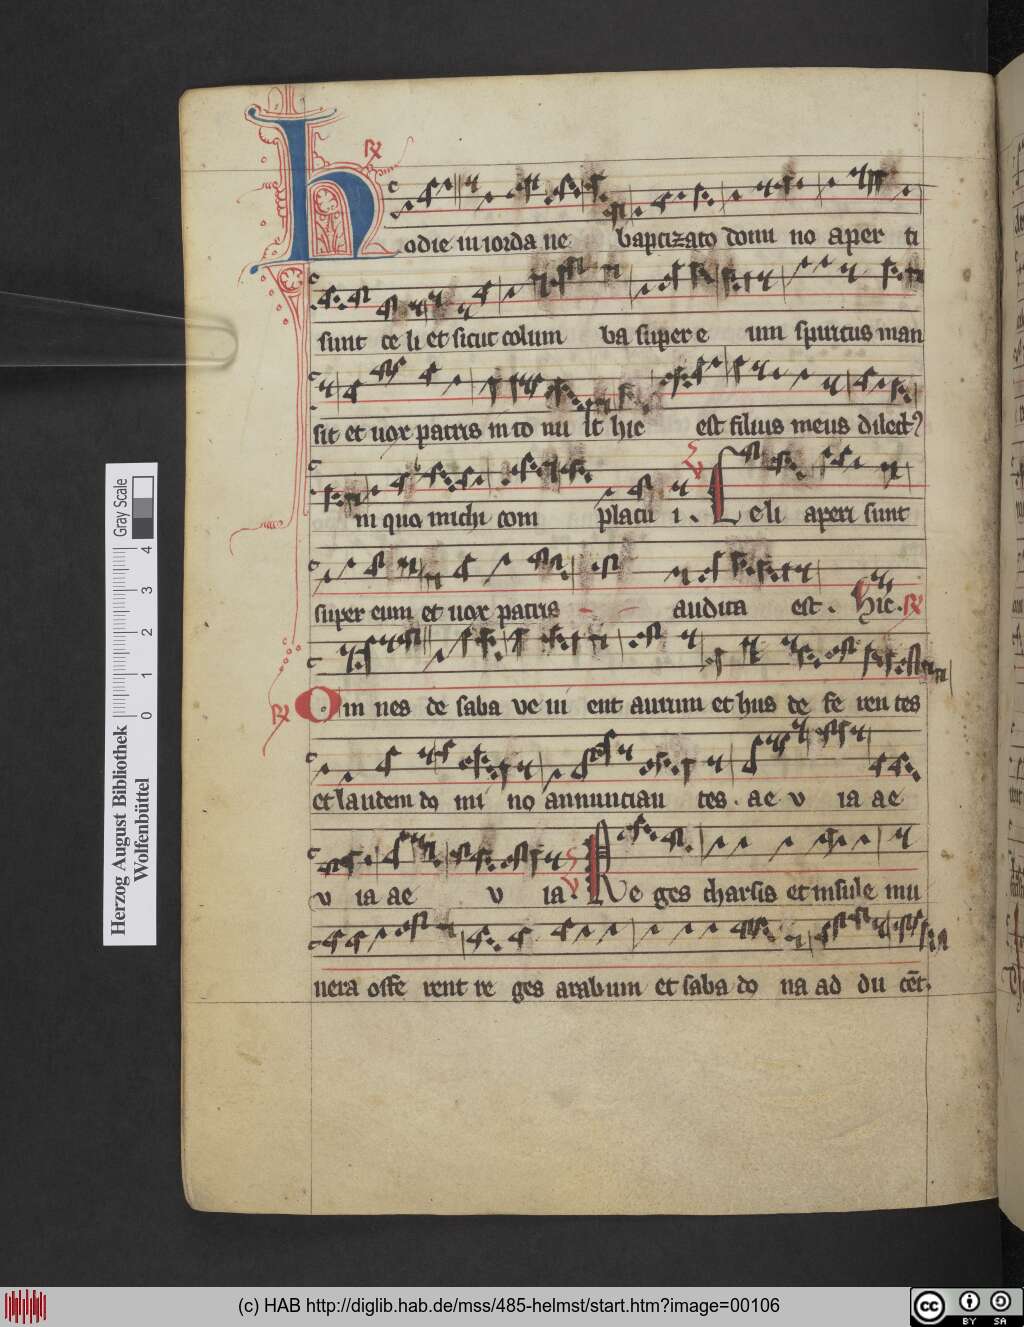 R
Hodie in iorda ne baptizato domi no aper ti
sunt ce li et sicut colum ba super e um spiritus man
sit et uox patris in to nu it hic est filius meus dilect9
in quo michi com placu i. V Celi aperi sunt
super eum et uox patris audita est. Hic. R
R Om nes de saba ve ni ent aurum et thus de fe ren tes
et laudem do mi no annuncian tes. ae v ia ae
v ia ae v ia. V Re ges tharsis et insule mu
nera offe rent re ges arabum et saba do na ad du cēt.
Gray Scale
0 1 2 3 4
Herzog August Bibliothek
Wolfenbüttel
(c) HAB http://diglib.hab.de/mss/485-helmst/start.htm?image=00106
cc BY SA